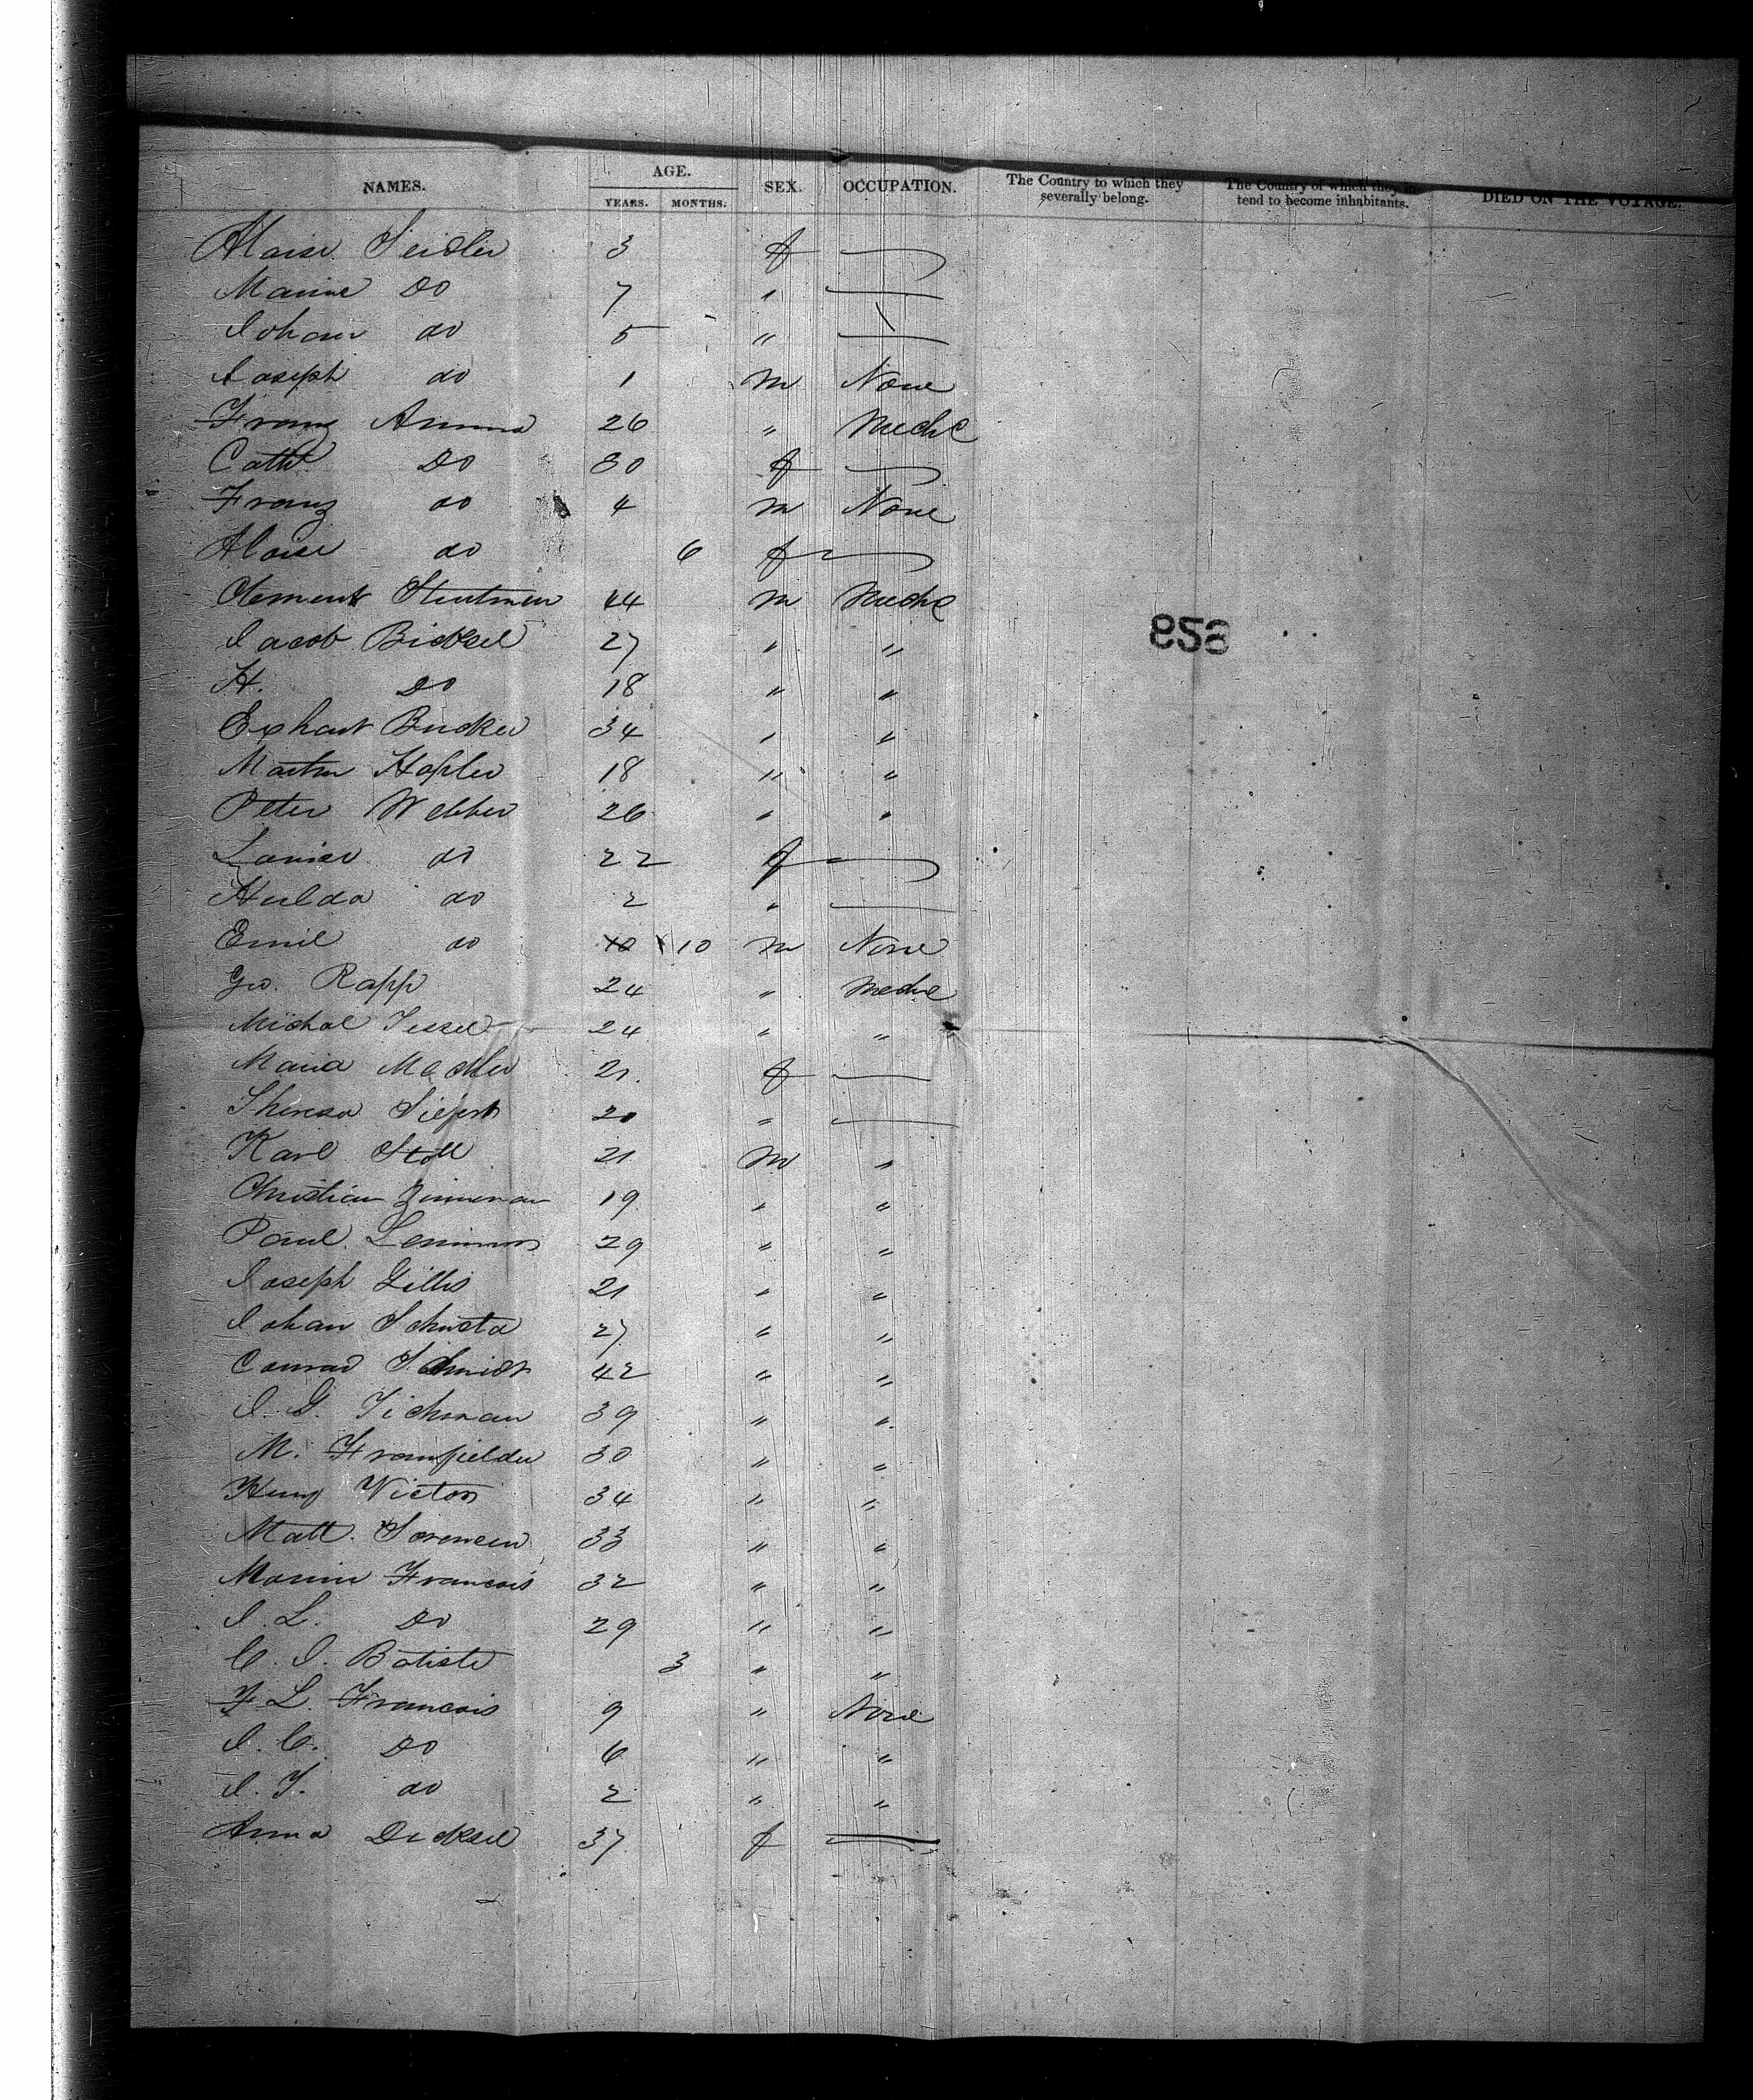 NAMES. AGE. SEX. OCCUPATION. The Country to which they severally belong. The Country of which they in-tend to become inhabitants. DIED ON THE VOYAGE.
YEARS. MONTHS.
Aloise Seidler 3 f
Marine Do 7 "
Johan do 5 "
Joseph do 1 m None
Franz 26 " Mechc
Cath Do 30 f
Franz do 4 m None
Aloise do 6 f
Clement 44 m Mechc
Jacob Bicksel 27 " "
H. Do 18 " "
Bucker 34 " "
Martin Hopler 18 " "
Peter Webber 26 " "
Louise do 22 f
Hulda do 2 "
Emil do 10 m None
Geo. Rapp 24 " Mechc
Michal Tessel 24 " "
Maria 21 f
Theresa Siefert 20 "
Karl Stoll 21 m "
Christian Zimmeman 19 " "
Paul 29 " "
Joseph Gillis 21 " "
Johan Schusta 27 " "
Conrad Schmidt 42 " "
J. G. Tichman 39 " "
M. 30 " "
Victor 34 " "
Matt. Sorensen 33 " "
Francois 32 " "
J. L. Do 29 " "
C. J. Batiste 3 " "
F. L. Francois 9 " None
J. C. Do 6 " "
J. T. do 2 " "
Anna Dicksel 37 f